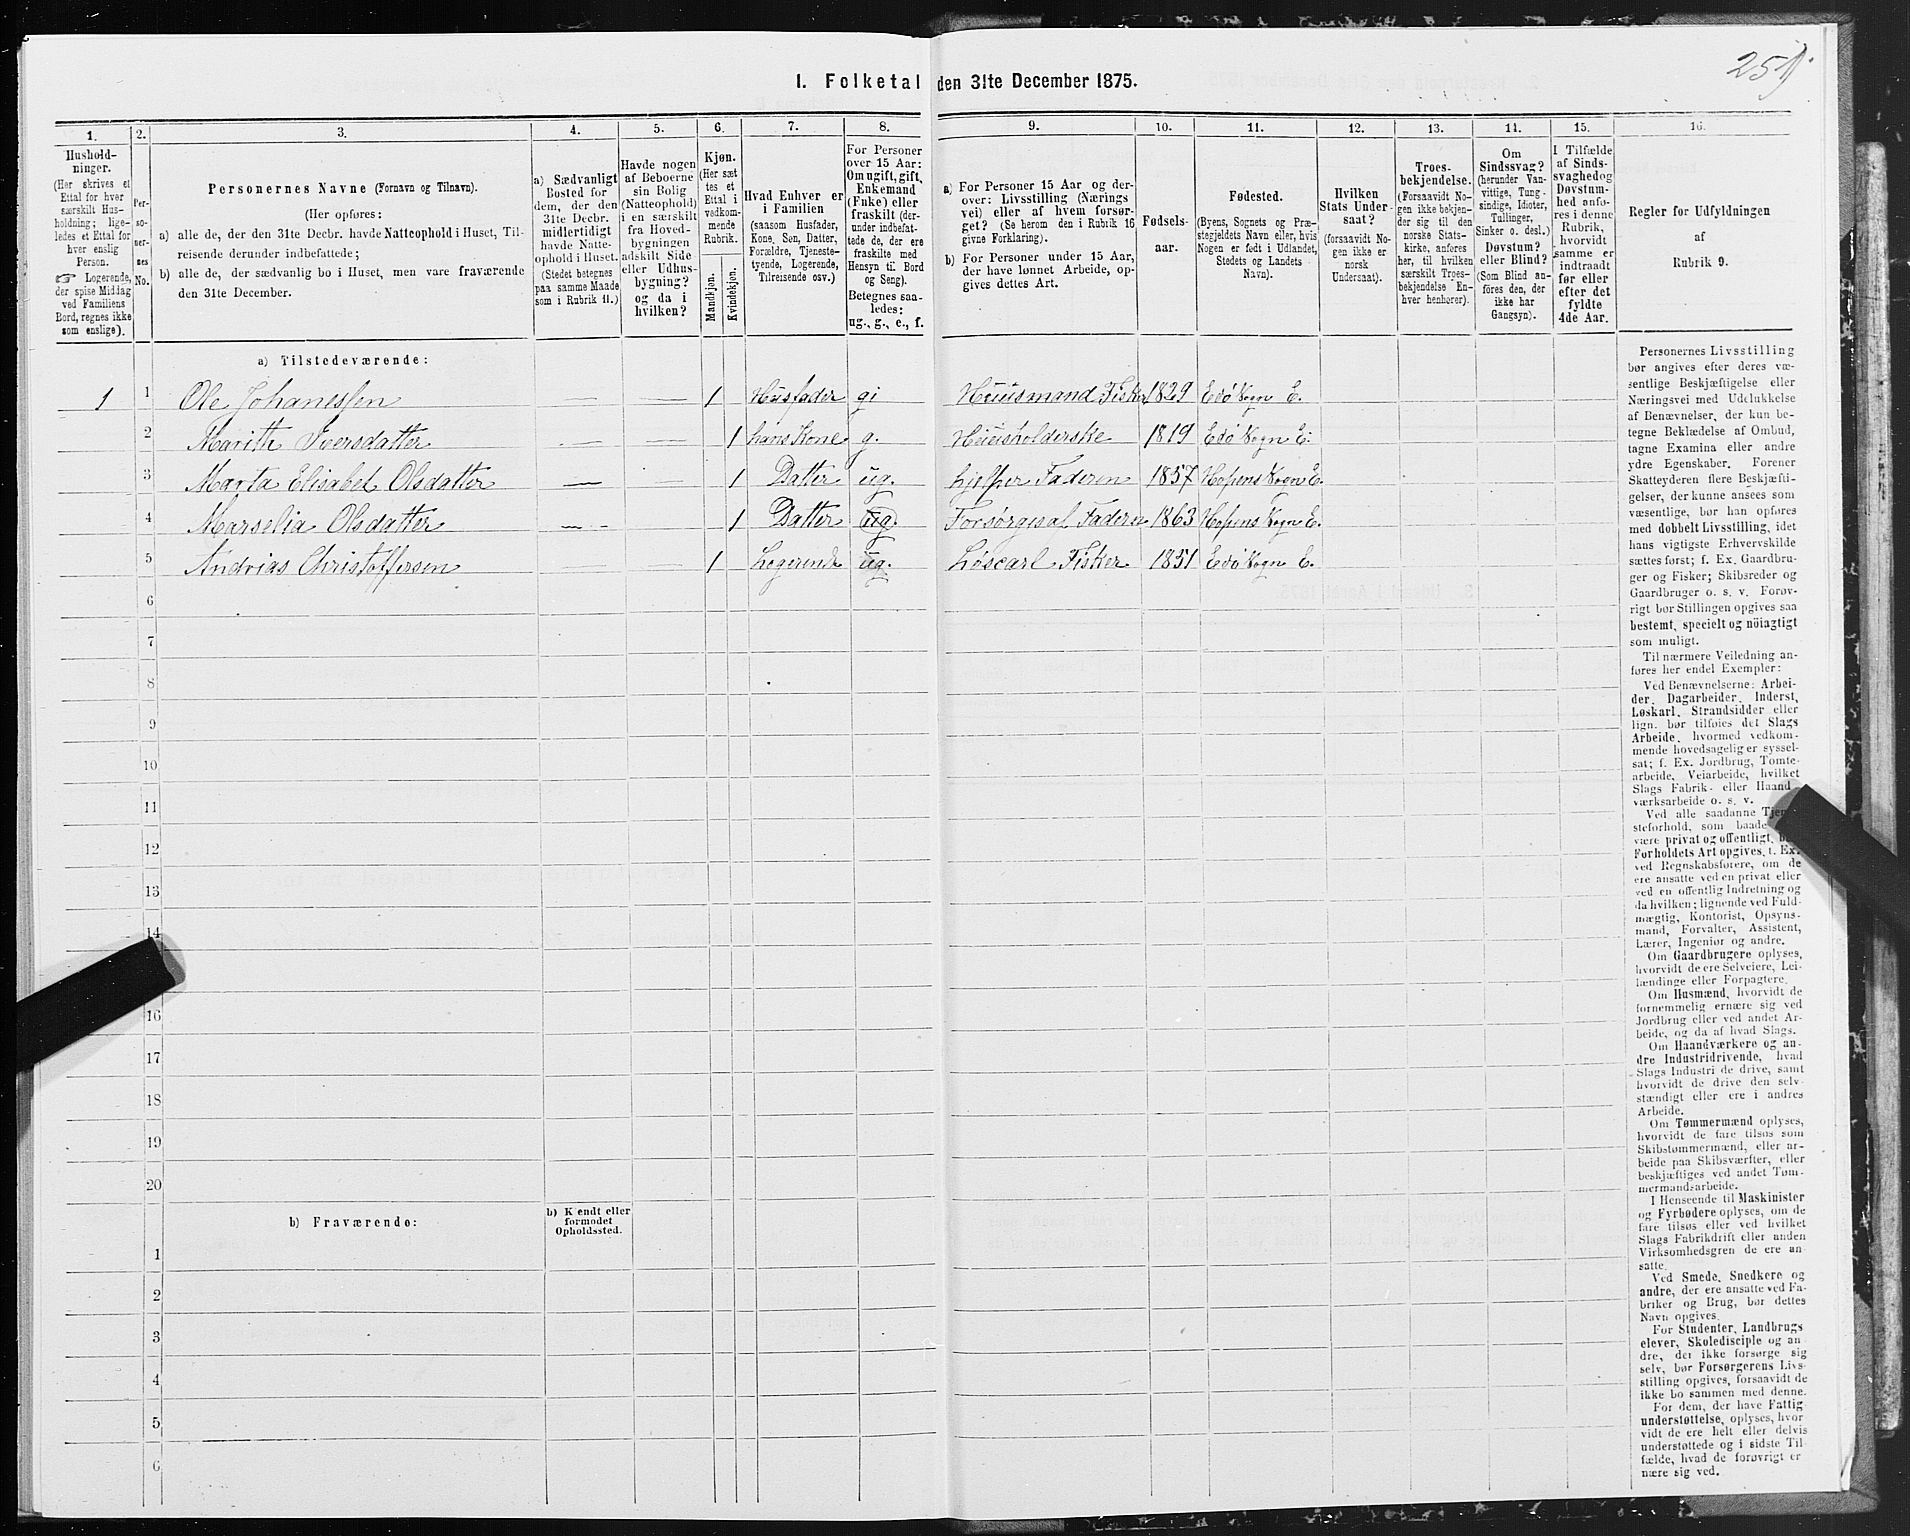 251
I. Folketal den 31te December 1875.
1. 2. 3. 4. 5. 6. 7. 8. 9. 10. 11. 12. 13. 14. 15. 16.
Hushold-
ninger.
(Her skrives et
Ettal for hver
særskilt Hus-
holdning; lige-
ledes et Ettal for
hver enslig
Person.
☞ Logerende,
der spise Middag
ved Familiens
Bord, regnes ikke
som enslige).
Per-
so-
ner-
nes
No.
Personernes Navne (Fornavn og Tilnavn).
(Her opføres:
a) alle de, der den 31te Decbr. havde Natteophold i Huset, Til-
reisende derunder indbefattede;
b) alle de, der sædvanlig bo i Huset, men vare fraværende
den 31te December.
a) Sædvanligt
Bosted for
dem, der den
31te Decbr.
midlertidigt
havde Natte-
ophold i Huset.
(Stedet betegnes
paa samme Maade
som i Rubrik 11.)
Havde nogen
af Beboerne
sin Bolig
(Natteophold)
i en særskilt
fra Hoved-
bygningen
adskilt Side
eller Udhus-
bygning?
og da i
hvilken?
Kjøn.
(Her sæt
tes et
Ettal i
vedkom-
mende
Rubrik.
Mandkjøn.
Kvindekjøn.
Hvad Enhver er
i Familien
(saasom Husfader,
Kone, Søn, Datter,
Forældre, Tjeneste-
tyende, Logerende,
Tilreisende osv.)
For Personer
over 15 Aar:
Om ugift, gift,
Enkemand
(Enke) eller
fraskilt (der-
under indbefat-
tede de, der ere
fraskilte med
Hensyn til Bord
og Seng).
Betegnes saa-
ledes:
ug., g., e., f.
a) For Personer 15 Aar og der-
over: Livsstilling (Nærings
vei) eller af hvem forsør-
get? (Se herom den i Rubrik 16
givne Forklaring).
b) For Personer under 15 Aar,
der have lønnet Arbeide, op-
gives dettes Art.
Fødsels-
aar.
Fødested.
(Byens, Sognets og Præ-
stegjeldets Navn eller, hvis
Nogen er født i Udlandet,
Stedets og Landets
Navn).
Hvilken
Stats Under-
saat?
(forsaavidt No-
gen ikke er
norsk
Undersaat).
Troes-
bekjendelse.
(Forsaavidt No-
gen ikke bekjen-
der sig til den
norske Stats-
kirke, anføres
her, til hvilken
særskilt Troes-
bekjendelse En-
hver henhører).
Om
Sindssvag?
(herunder Van-
vittige, Tung-
sindige, Idioter,
Tullinger,
Sinker o. desl.)
Døvstum?
eller Blind?
(Som Blind an-
føres den, der
ikke har
Gangsyn).
I Tilfælde
af Sinds-
svaghed og
Døvstum-
hed anfø-
res i denne
Rubrik,
hvorvidt
samme er
indtraadt
før eller
efter det
fyldte
4de Aar.
Regler for Udfyldningen
af
Rubrik 9.
a) Tilstedeværende:
1 1 Ole Johanessen — — 1 Husfader gi Huusmand Fisker 1829 Edø Sogn E.
2 Marith Iversdatter — — 1 hans Kone g. Huusholderske 1819 Edø Sogn E.
3 Marta Elisabet Olsdatter — — 1 Datter ug. hjelper Faderen 1857 Hopens Sogn E.
4 Marselia Olsdatter — - 1 Datter ug. Forsørges af Faderen 1863 Hopens Sogn E.
5 Andrias Christoffersen — — 1 Logerende ug. Løscarl Fisker 1851 Edø Sogn E.
6
7
8
9
10
11
12
13
14
16
17
18
19
20
b) Fraværende: b) Kjendt eller
formodet
Opholdssted.
1
2
3
4
5
6
Personernes Livsstilling
bør angives efter deres væ-
sentlige Beskjæftigelse eller
Næringsvei med Udelukkelse
af Benævnelser, der kun be-
tegne Beklædelse af Ombud,
tagne Examina eller andre
ydre Egenskaber. Forener
Skatteyderen flere Beskjæfti-
gelser, der kunne ansees som
væsentlige, bør han opføres
med dobbelt Livsstilling, idet
hans vigtigste Erhvervskilde
sættes først; f. Ex. Gaardbru-
ger og Fisker; Skibsreder og
Gaardbruger o. s. v. Forøv-
rigt bør Stillingen opgives saa
bestemt, specielt og nöiagtigt
som muligt.
Til nærmere Veiledning an-
føres her endel Exempler:
Ved Benævnelserne: Arbei-
der, Dagarbeider, Inderst,
Løskarl, Strandsidder eller
lign. bør tilføies det Slags
Arbeide, hvormed vedkom-
mende hovedsagelig er syssel-
sat; f. Ex. Jordbrug, Tomte-
arbeide, Veiarbeide, hvilket
Slags Fabrik- eller Haand-
værksarbeide o. s. v.
Ved alle saadanne
steforhold, som baade
være privat og offentligt,
Forholdets Art opgives, f. Ex.
ved Regnskabsførere, om de
ere ansatte ved en privat eller
ved en offentlig Indretning og
da hvilken; lignende ved Fuld-
mægtig, Kontorist, Opsyns-
mand, Forvalter, Assistent,
Lærer, Ingeniør og andre.
Om Gaardbrugere oplyses,
hvorvidt de ere Selveiere, Lei-
lændinge eller Forpagtere.
Om Husmænd, hvorvidt de
fornemmelig ernære sig ved
Jordbrug eller ved andet Ar-
beide, og da af hvad Slags.
Om Haandværkere og an-
dre Industridrivende, hvad
Slags Industri de drive, samt
hvorvidt de drive den selv-
stændigt eller ere i andres
Arbeide.
Om Tømmermænd oplyses,
hvorvidt de fare tilsøs som
Skibstømmermænd, eller ar-
beide paa Skibsværfter, eller
beskjæftiges ved andet Tøm-
mermandsarbeide.
I Henseende til Maskinister
og Fyrbødere oplyses, om de
fare tilsøs eller ved hvilket
Slags Fabrikdrift eller anden
Virksomhedsgren de ere an-
satte.
Ved Smede, Snedkere og
andre, der ere ansatte ved Fa-
briker og Brug, bør dettes
Navn opgives.
For Studenter, Landbrugs
elever, Skoledisciple og an-
dre, der ikke forsørge sig
selv, bør Forsørgerens Livs-
stilling opgives, forsaavidt de
ikke bo sammen med denne.
For dem, der have Fattig
understøttelse, oplyses, hvor
vidt de ere helt eller delvis
understøttede og i sidste Til-
fælde, hvad de forøvrigt er
nære sig ved.